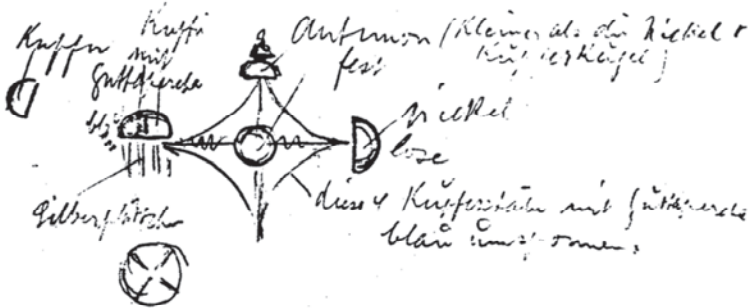 Kupfer
Kupfer
mit
Guttapercha
Antimon (Kleiner als die Nickel +
Kupferkugel)
fest
Nickel
lose
Silberplättchen
diese 4 Kupferstäbe mit Guttapercha
blau umsponnen.